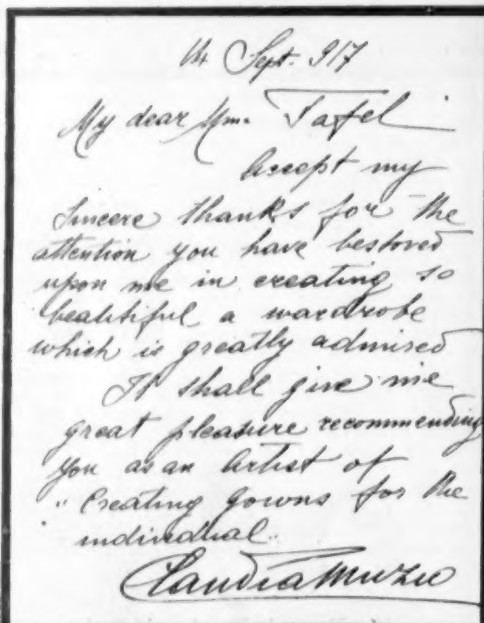 14 Sept. 917
My dear Mme. Tafel
Accept my
sincere thanks for the
attention you have bestoved
upon me in creating so
beautiful a wardrobe
which is greatly admired
It shall give me
great pleasure recommending
you as an Artist of
"Creating gowns for the
individual"
Claudia Muzio